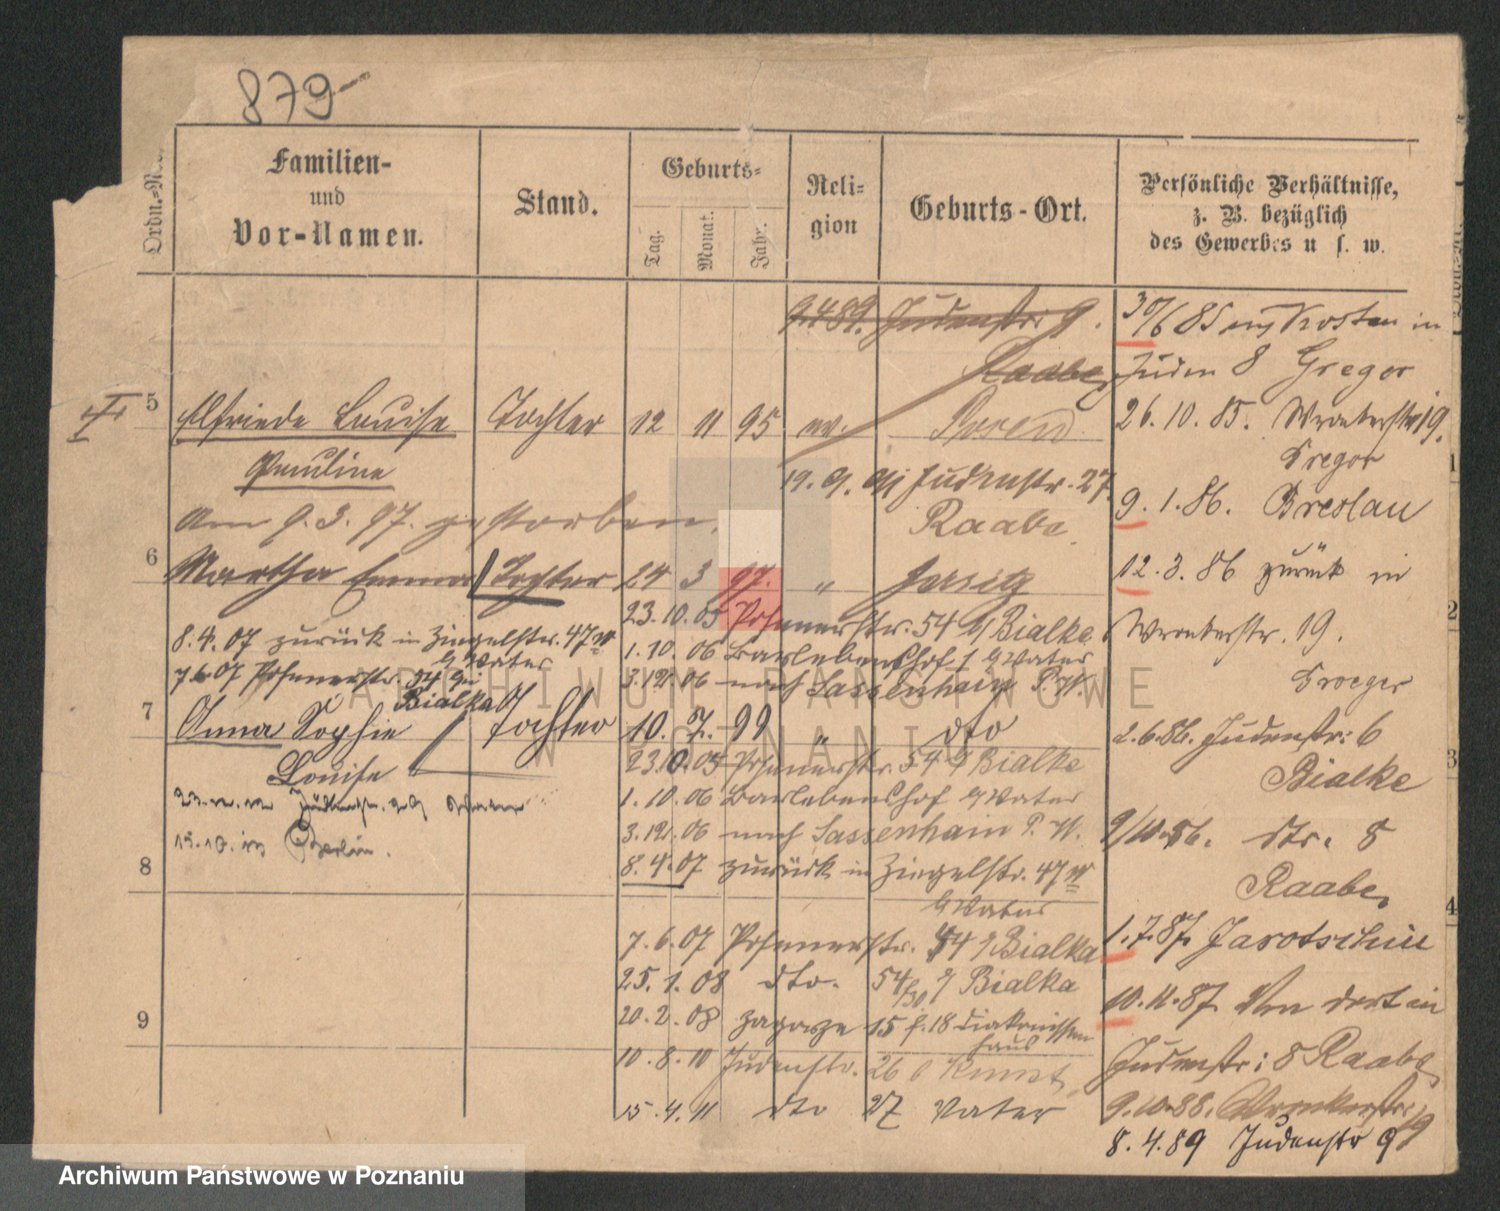 879
Ordn.-No.
Familien-
und
Vor-Namen.
Stand.
Geburts-
Tag.
Monat.
Jahr.
Reli-
gion
Geburts-Ort.
Persönliche Verhältnisse,
z. B. bezüglich
des Gewerbes u s. w.
9.4.89. Judenstr: 9.
Raabe
5 Elfriede Louise Tochter 12 11 95 ev. Posen
Pauline
am 9.3.97. gestorben.
19. 9. 91 Judenstr. 27.
Raabe.
6 Martha Emma Tochter 24 3 97. " Jersitz
23.10.05 Posenerstr. 54 b/Bialke
8.4.07 zurück in Ziegelstr. 47
b/Vater
1.10.06 Barlebenshof b/Vater
7.6.07 Posenerstr. 54 bei
Bialka
3.12.06 nach Sassenhain P. W.
7 Anna Sophie Tochter 10. 7. 99 " dto
Louise
23.10.05 Posenerstr. 54 b/Bialke
1.10.06 Barlebenshof b/Vater
3.12.06 nach Sassenhain P. W.
15.10. in Berlin.
8 8.4.07 zurück in Ziegelstr. 47
b/Vater
7.6.07 Posenerstr. 54 b/Bialka
25.1.08 dto. 54 b/Bialka
9 20.2.08 zagorze 15 f. 18 Diakonissen
haus
10.8.10 Judenstr. 26 b Kunst
15.4.11 dto 27 Vater
30/6 85 Kosten in
Juden 8 Gregor
26.10.85. Wronkerstr 19.
Gregor
9.1.86. Breslau
12.3.86 zurück in
Wronkerstr. 19.
Droeger
2.6.86. Judenstr: 6
Bialke
9/10.86. dto. 8
Raabe.
1.7.87. Jarotschin
10.11.87. Von dort in
Judenstr: 8 Raabe
9.10.88. Wronkerstr: 19
8.4.89 Judenstr 9
1
2
3
4
ARCHIWUM PAŃSTWOWE
W POZNANIU
Archiwum Państwowe w Poznaniu